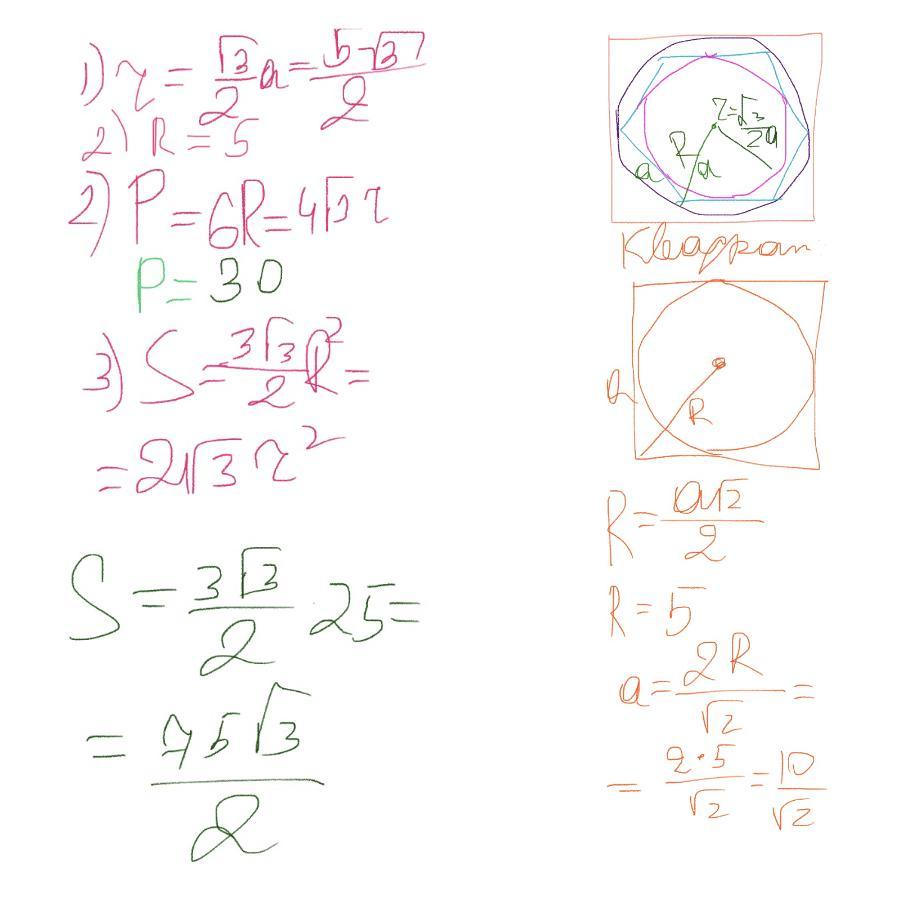 1) r = √3/2 a = 5√3/2
2) R = 5
2) P = 6R = 4√3 r
P = 30
3) S = 3√3/2 R² =
= 2√3 r²
S = 3√3/2 25 =
= 75√3/2
r = √3/2 a
R
a
a
Квадрат
a
R
R = a√2/2
R = 5
a = 2R/√2 =
= 2·5/√2 = 10/√2